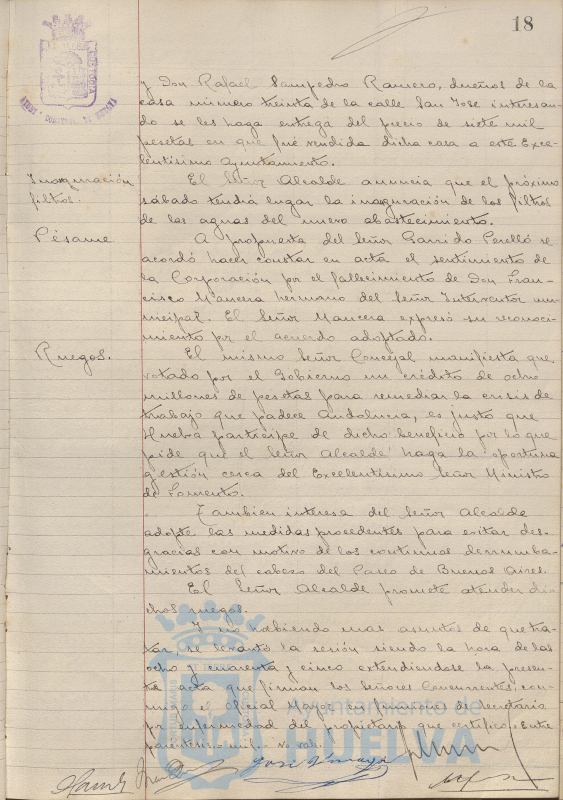 18
y Don Rafael Sampedro Romero, dueños de la
casa número treinta de la calle San José interesan-
do se les haga entrega del precio de siete mil
pesetas en que fué vendida dicha casa a este Exce-
lentísimo Ayuntamiento.
Inauguración
filtros.
El Señor Alcalde anuncia que el próximo
sábado tendrá lugar la inauguración de los filtros
de las aguas del nuevo abastecimiento.
Pésame
A propuesta del Señor Garrido Perelló se
acordó hacer constar en acta el sentimiento de
la Corporación por el fallecimiento de Don Fran-
cisco Mancera hermano del Señor Interventor mu-
nicipal. El Señor Mancera expresó su reconoci-
miento por el acuerdo adoptado.
Ruegos.
El mismo Señor Concejal manifiesta que
votado por el Gobierno un crédito de ocho
millones de pesetas para remediar la crisis de
trabajo que padece Andalucia, es justo que
Huelva participe de dicho beneficio por lo que
pide que el Señor Alcalde haga la oportuna
gestión cerca del Excelentísimo Señor Ministro
de Fomento.
Tambien interesa del Señor Alcalde
adopte las medidas procedentes para evitar des-
gracias con motivo de los continuos derrumba-
mientos del cabezo del Paseo de Buenos Aires.
El Señor Alcalde promete atender di-
chos ruegos.
Y no habiendo mas asuntos de que tra-
tar, se levantó la sesión siendo la hora de las
ocho y cuarenta y cinco extendiendose la presen-
te acta que firman los señores Concurrentes, con-
migo el oficial Mayor en funcion de Secretario
por enfermedad del propietario que certifico. Entre
parentesis = mil = No vale.
José
Ayuntamiento de
HUELVA